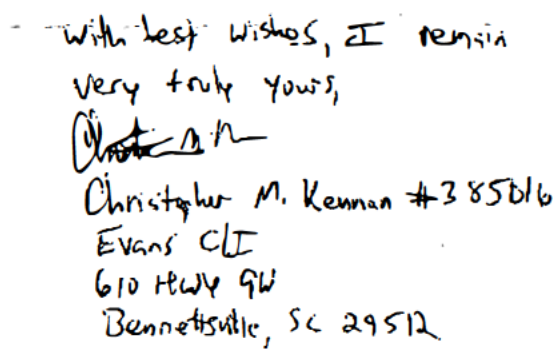 with best wishes, I remain
very truly yours,
Christopher M. Kennan #385016
Evans CI
610 Hwy 9W
Bennettsville, SC 29512